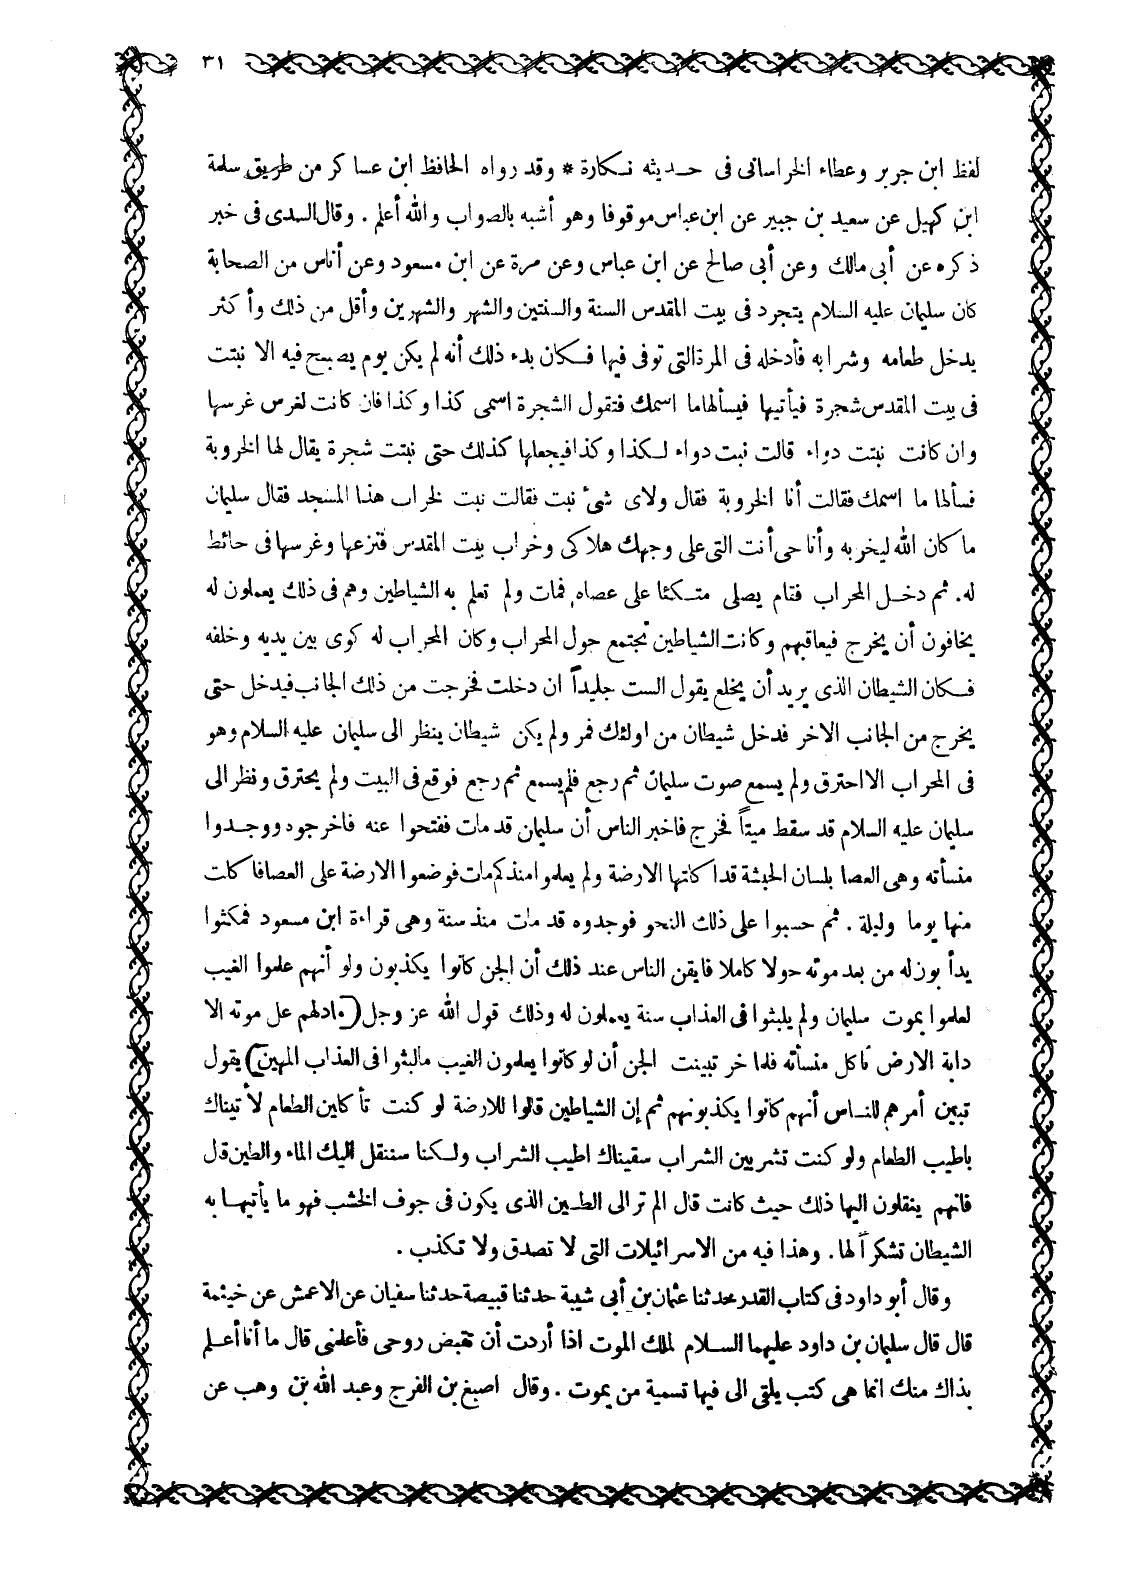 ٣١
لفظ ابن جرير وعطاء الخراسانى فى حديثه نكارة * وقد رواه الحافظ ابن عساكر من طريق سلمة
ابن كهيل عن سعيد بن جبير عن ابن عباس موقوفا وهو أشبه بالصواب والله أعلم . وقال السدى فى خبر
ذكره عن أبى مالك وعن أبى صالح عن ابن عباس وعن مرة عن ابن مسعود وعن أناس من الصحابة
كان سليمان عليه السلام يتجرد فى بيت المقدس السنة والسنتين والشهر والشهرين وأقل من ذلك وأكثر
يدخل طعامه وشرابه فأدخله فى المرة التى توفى فيها فكان بدء ذلك أنه لم يكن يوم يصبح فيه الا نبتت
فى بيت المقدس شجرة فيأتيها فيسألها ما اسمك فتقول الشجرة اسمى كذا وكذا فان كانت لغرس غرسها
وان كانت نبتت دواء قالت نبت دواء لكذا وكذا فيجعلها كذلك حتى نبتت شجرة يقال لها الخروبة
فسألها ما اسمك فقالت أنا الخروبة فقال ولاى شئ نبت فقالت نبت لخراب هذا المسجد فقال سليمان
ما كان الله ليخربه وأنا حى أنت التى على وجهك هلاكى وخراب بيت المقدس فنزعها وغرسها فى حائط
له . ثم دخل المحراب فقام يصلى متكئا على عصاه فمات ولم تعلم به الشياطين وهم فى ذلك يعملون له
يخافون أن يخرج فيعاقبهم وكانت الشياطين تجتمع حول المحراب وكان المحراب له كوى بين يديه وخلفه
فكان الشيطان الذى يريد أن يخلع يقول الست جليداً ان دخلت فخرجت من ذلك الجانب فيدخل حتى
يخرج من الجانب الاخر فدخل شيطان من اولئك فمر ولم يكن شيطان ينظر الى سليمان عليه السلام وهو
فى المحراب الا احترق ولم يسمع صوت سليمان ثم رجع فلم يسمع ثم رجع فوقع فى البيت ولم يحترق ونظر الى
سليمان عليه السلام قد سقط ميتاً فخرج فاخبر الناس أن سليمان قد مات ففتحوا عنه فاخرجوه ووجدوا
منسأته وهى العصا بلسان الحبشة قد اكلتها الارضة ولم يعلموا منذ كم مات فوضعوا الارضة على العصا فاكلت
منها يوما وليلة . ثم حسبوا على ذلك النحو فوجدوه قد مات منذ سنة وهى قراءة ابن مسعود فمكثوا
يدأبون له من بعد موته حولا كاملا فايقن الناس عند ذلك أن الجن كانوا يكذبون ولو أنهم علموا الغيب
لعلموا بموت سليمان ولم يلبثوا فى العذاب سنة يعملون له وذلك قول الله عز وجل (ما دلهم على موته الا
دابة الارض تأكل منسأته فلما خر تبينت الجن أن لو كانوا يعلمون الغيب مالبثوا فى العذاب المهين) يقول
تبين أمرهم للناس أنهم كانوا يكذبونهم ثم إن الشياطين قالوا للارضة لو كنت تأكلين الطعام لأتيناك
باطيب الطعام ولو كنت تشربين الشراب سقيناك اطيب الشراب ولكنا سننقل اليك الماء والطين قال
فانهم ينقلون اليها ذلك حيث كانت قال الم تر الى الطين الذى يكون فى جوف الخشب فهو ما يأتيها به
الشيطان تشكراً لها . وهذا فيه من الاسرائيلات التى لا تصدق ولا تكذب .
وقال أبو داود فى كتاب القدر حدثنا عثمان بن أبى شيبة حدثنا قبيصة حدثنا سفيان عن الاعمش عن خيثمة
قال قال سليمان بن داود عليهما السلام لملك الموت اذا أردت أن تقبض روحى فأعلمنى قال ما أنا أعلم
بذاك منك انما هى كتب يلقى الى فيها تسمية من يموت . وقال اصبغ بن الفرج وعبد الله بن وهب عن